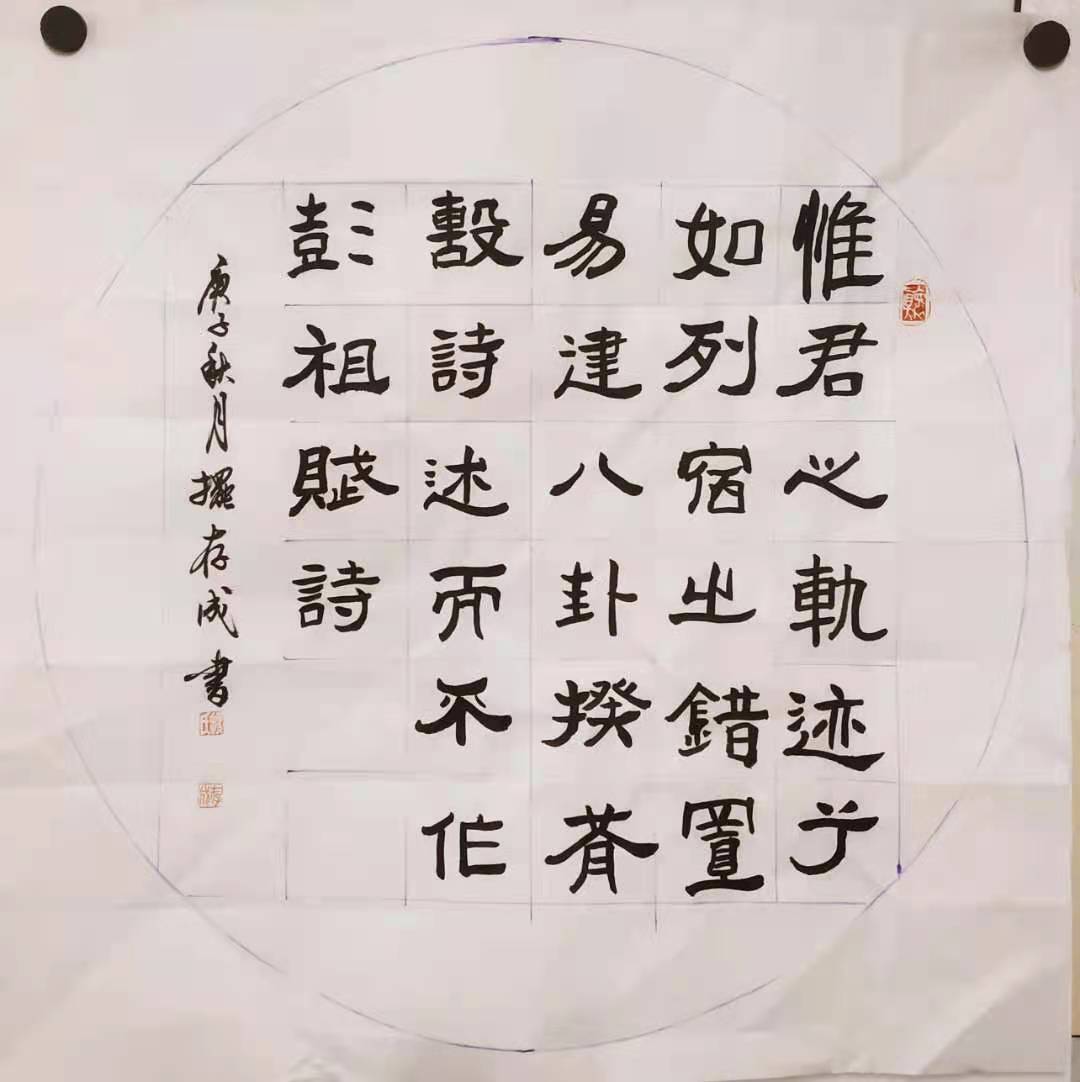 惟君心軌迹兮
如列宿之錯置
易建八卦揆肴
毄詩述而不作
彭祖賦詩
庚子秋月存成書